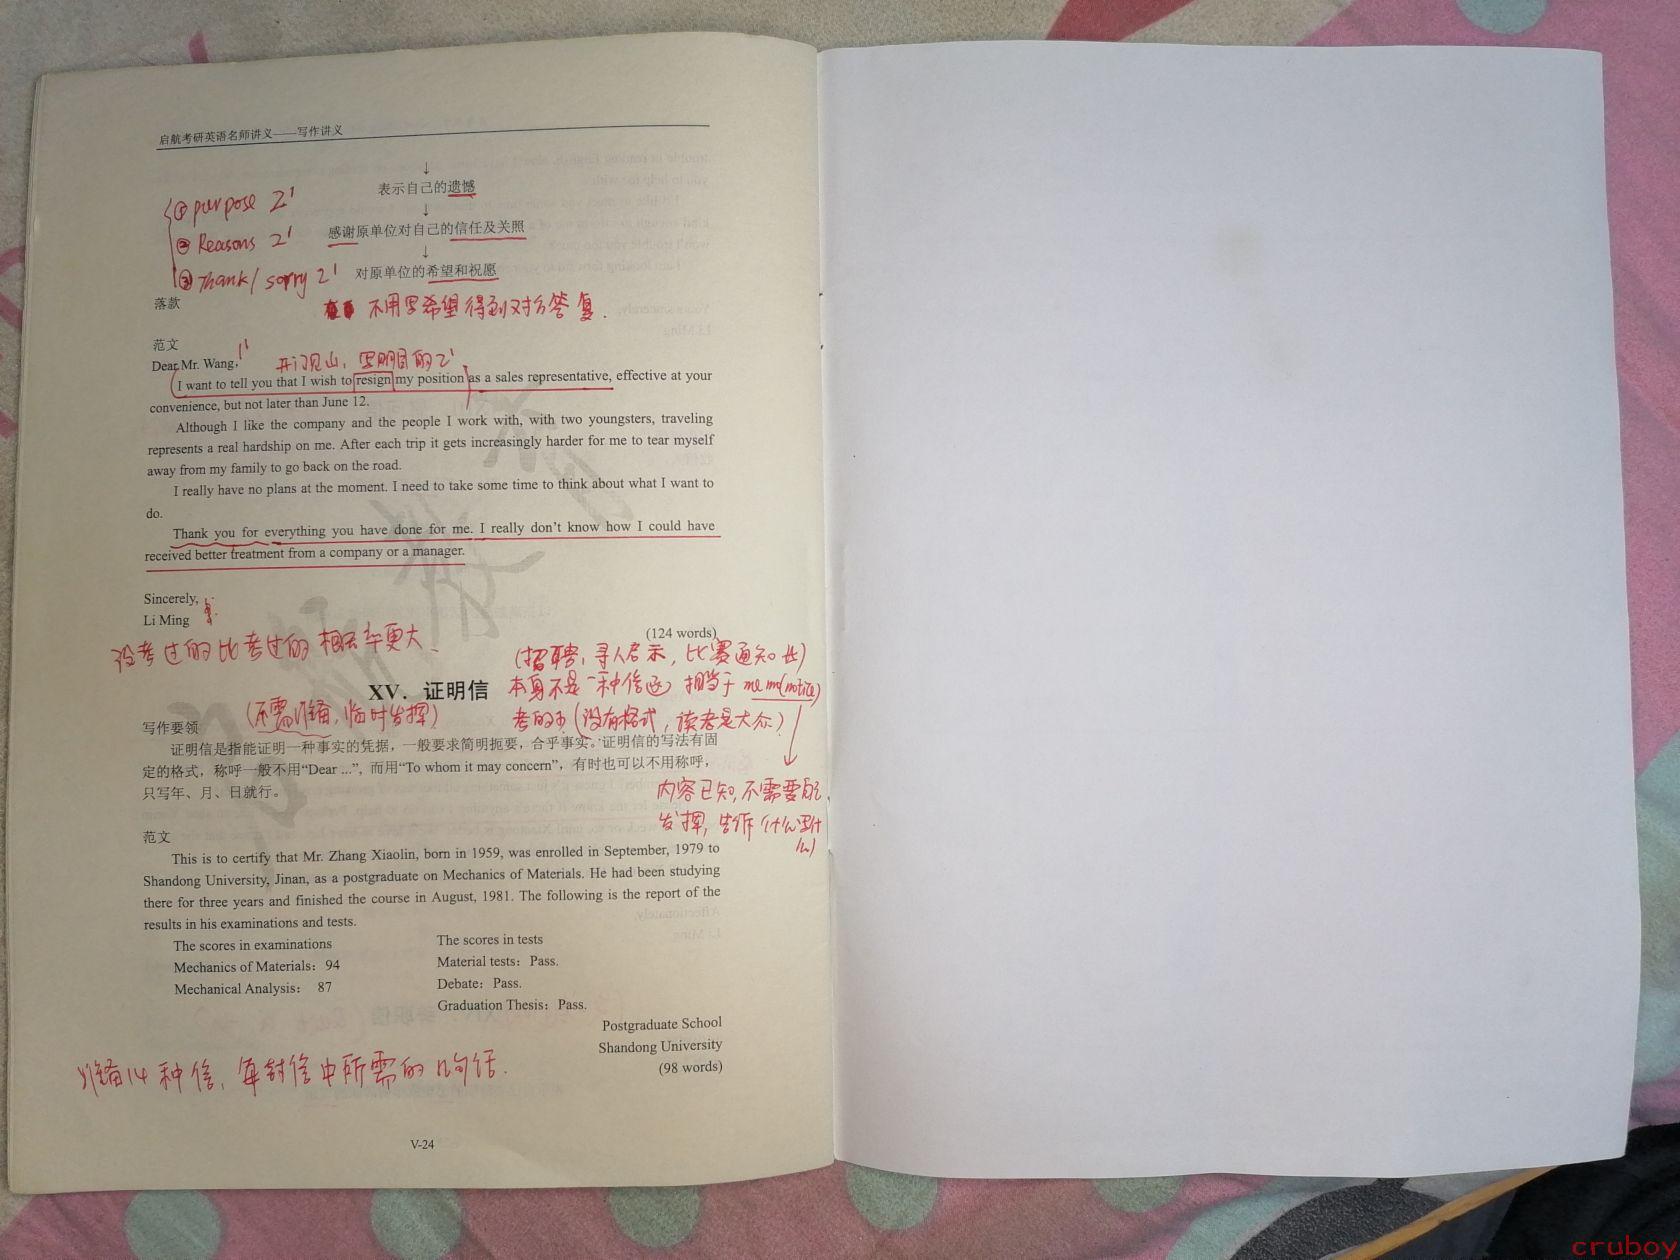 启航考研英语名师讲义——写作讲义
↓
表示自己的遗憾
① purpose 2'
↓
感谢原单位对自己的信任及关照
② Reasons 2'
↓
对原单位的希望和祝愿
③ Thank/ sorry 2'
落款
不用写希望得到对方答复.
范文
Dear Mr. Wang, 1'
开门见山, 写明目的2'
I want to tell you that I wish to resign my position as a sales representative, effective at your
convenience, but not later than June 12.
Although I like the company and the people I work with, with two youngsters, traveling
represents a real hardship on me. After each trip it gets increasingly harder for me to tear myself
away from my family to go back on the road.
I really have no plans at the moment. I need to take some time to think about what I want to
do.
Thank you for everything you have done for me. I really don't know how I could have
received better treatment from a company or a manager.
Sincerely,
Li Ming
(124 words)
没考过的比考过的概率更大
(招聘, 寻人启示, 比赛通知
XV. 证明信
本身不是一种信函 相当于 memo(notice)
(不需准备, 临时发挥)
考的少 (没有格式, 读者是大众)
写作要领
证明信是指能证明一种事实的凭据，一般要求简明扼要，合乎事实。证明信的写法有固
定的格式，称呼一般不用“Dear ...”, 而用“To whom it may concern”，有时也可以不用称呼，
只写年、月、日就行。
内容已知, 不需要自己
发挥, 告诉什么写什
么)
范文
This is to certify that Mr. Zhang Xiaolin, born in 1959, was enrolled in September, 1979 to
Shandong University, Jinan, as a postgraduate on Mechanics of Materials. He had been studying
there for three years and finished the course in August, 1981. The following is the report of the
results in his examinations and tests.
The scores in examinations
The scores in tests
Mechanics of Materials： 94
Material tests：Pass.
Mechanical Analysis： 87
Debate：Pass.
Graduation Thesis：Pass.
Postgraduate School
Shandong University
(98 words)
准备14种信, 每封信中所需的几句话.
V-24
cruboy